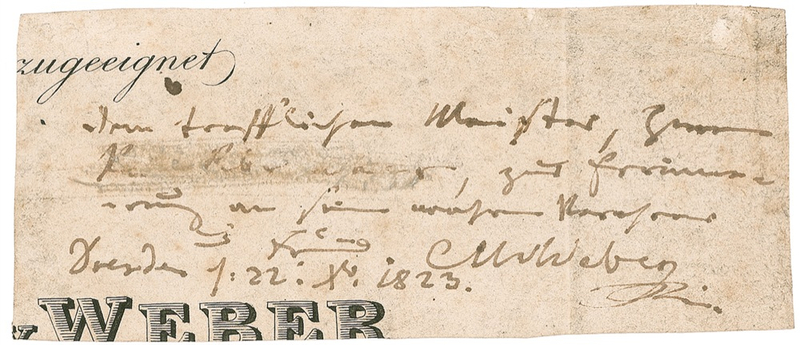 zugeeignet
dem trefflichen Meister, Herrn
, zur Erinne-
rung an seinen wahren Verehrer
und Freund
Dresden d: 22: 1823. CMvWeber
WEBER